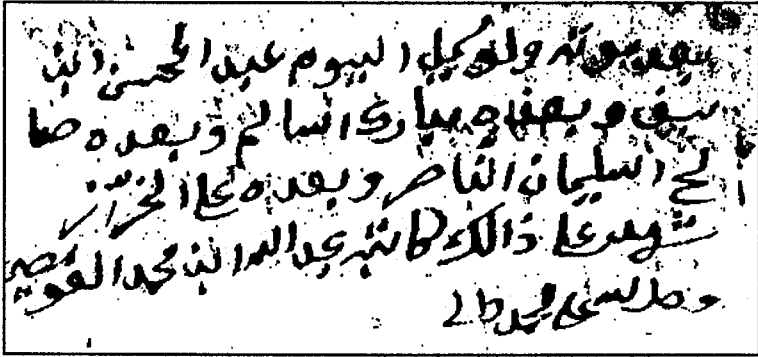 بعد موته ولوكيل اليوم عبد المحسن ابن
سيف وبعده مبارك السالم وبعده صا
لح السليمان الناصر وبعده علي الخزاز
شهد على ذالك كاتبه عبد الله ابن محمد القويصير
وصل الله على محمد